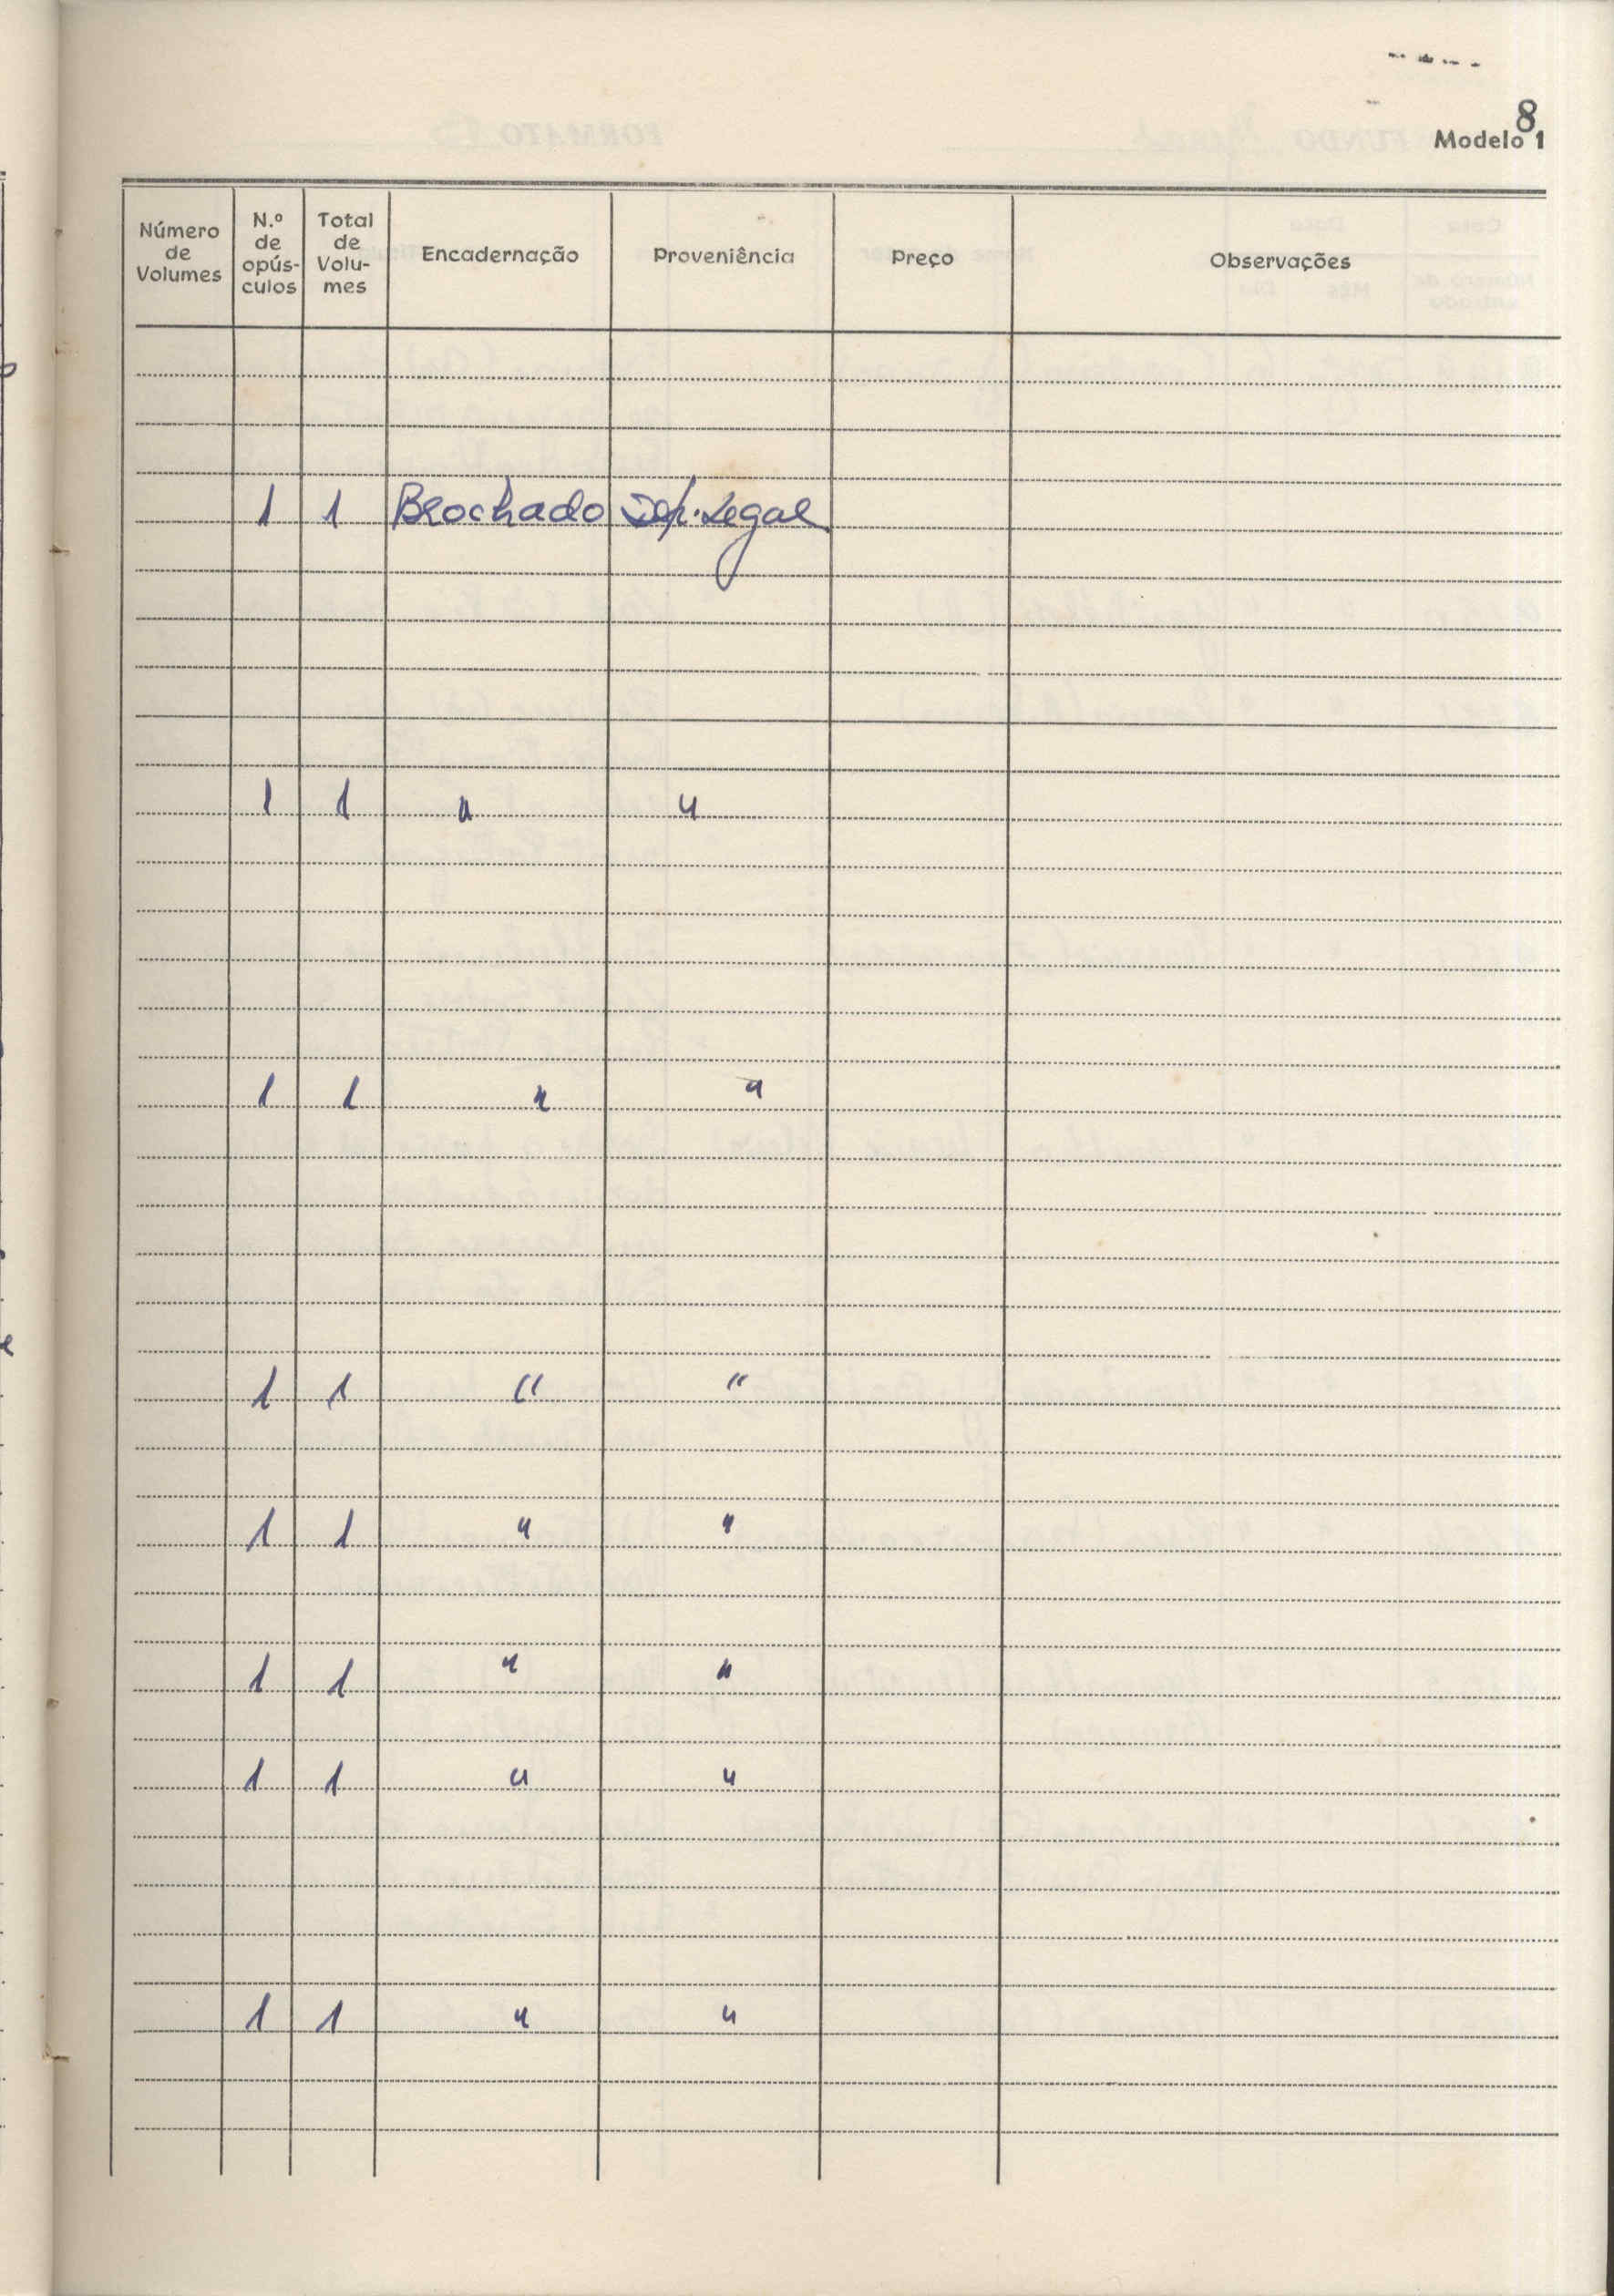 8
Modelo 1
Número de Volumes N.º de opús-culos Total de Volu-mes Encadernação Proveniência Preço Observações
1 1 Brochado Dep. Legal
1 1 " "
1 1 " "
1 1 " "
1 1 " "
1 1 " "
1 1 " "
1 1 " "